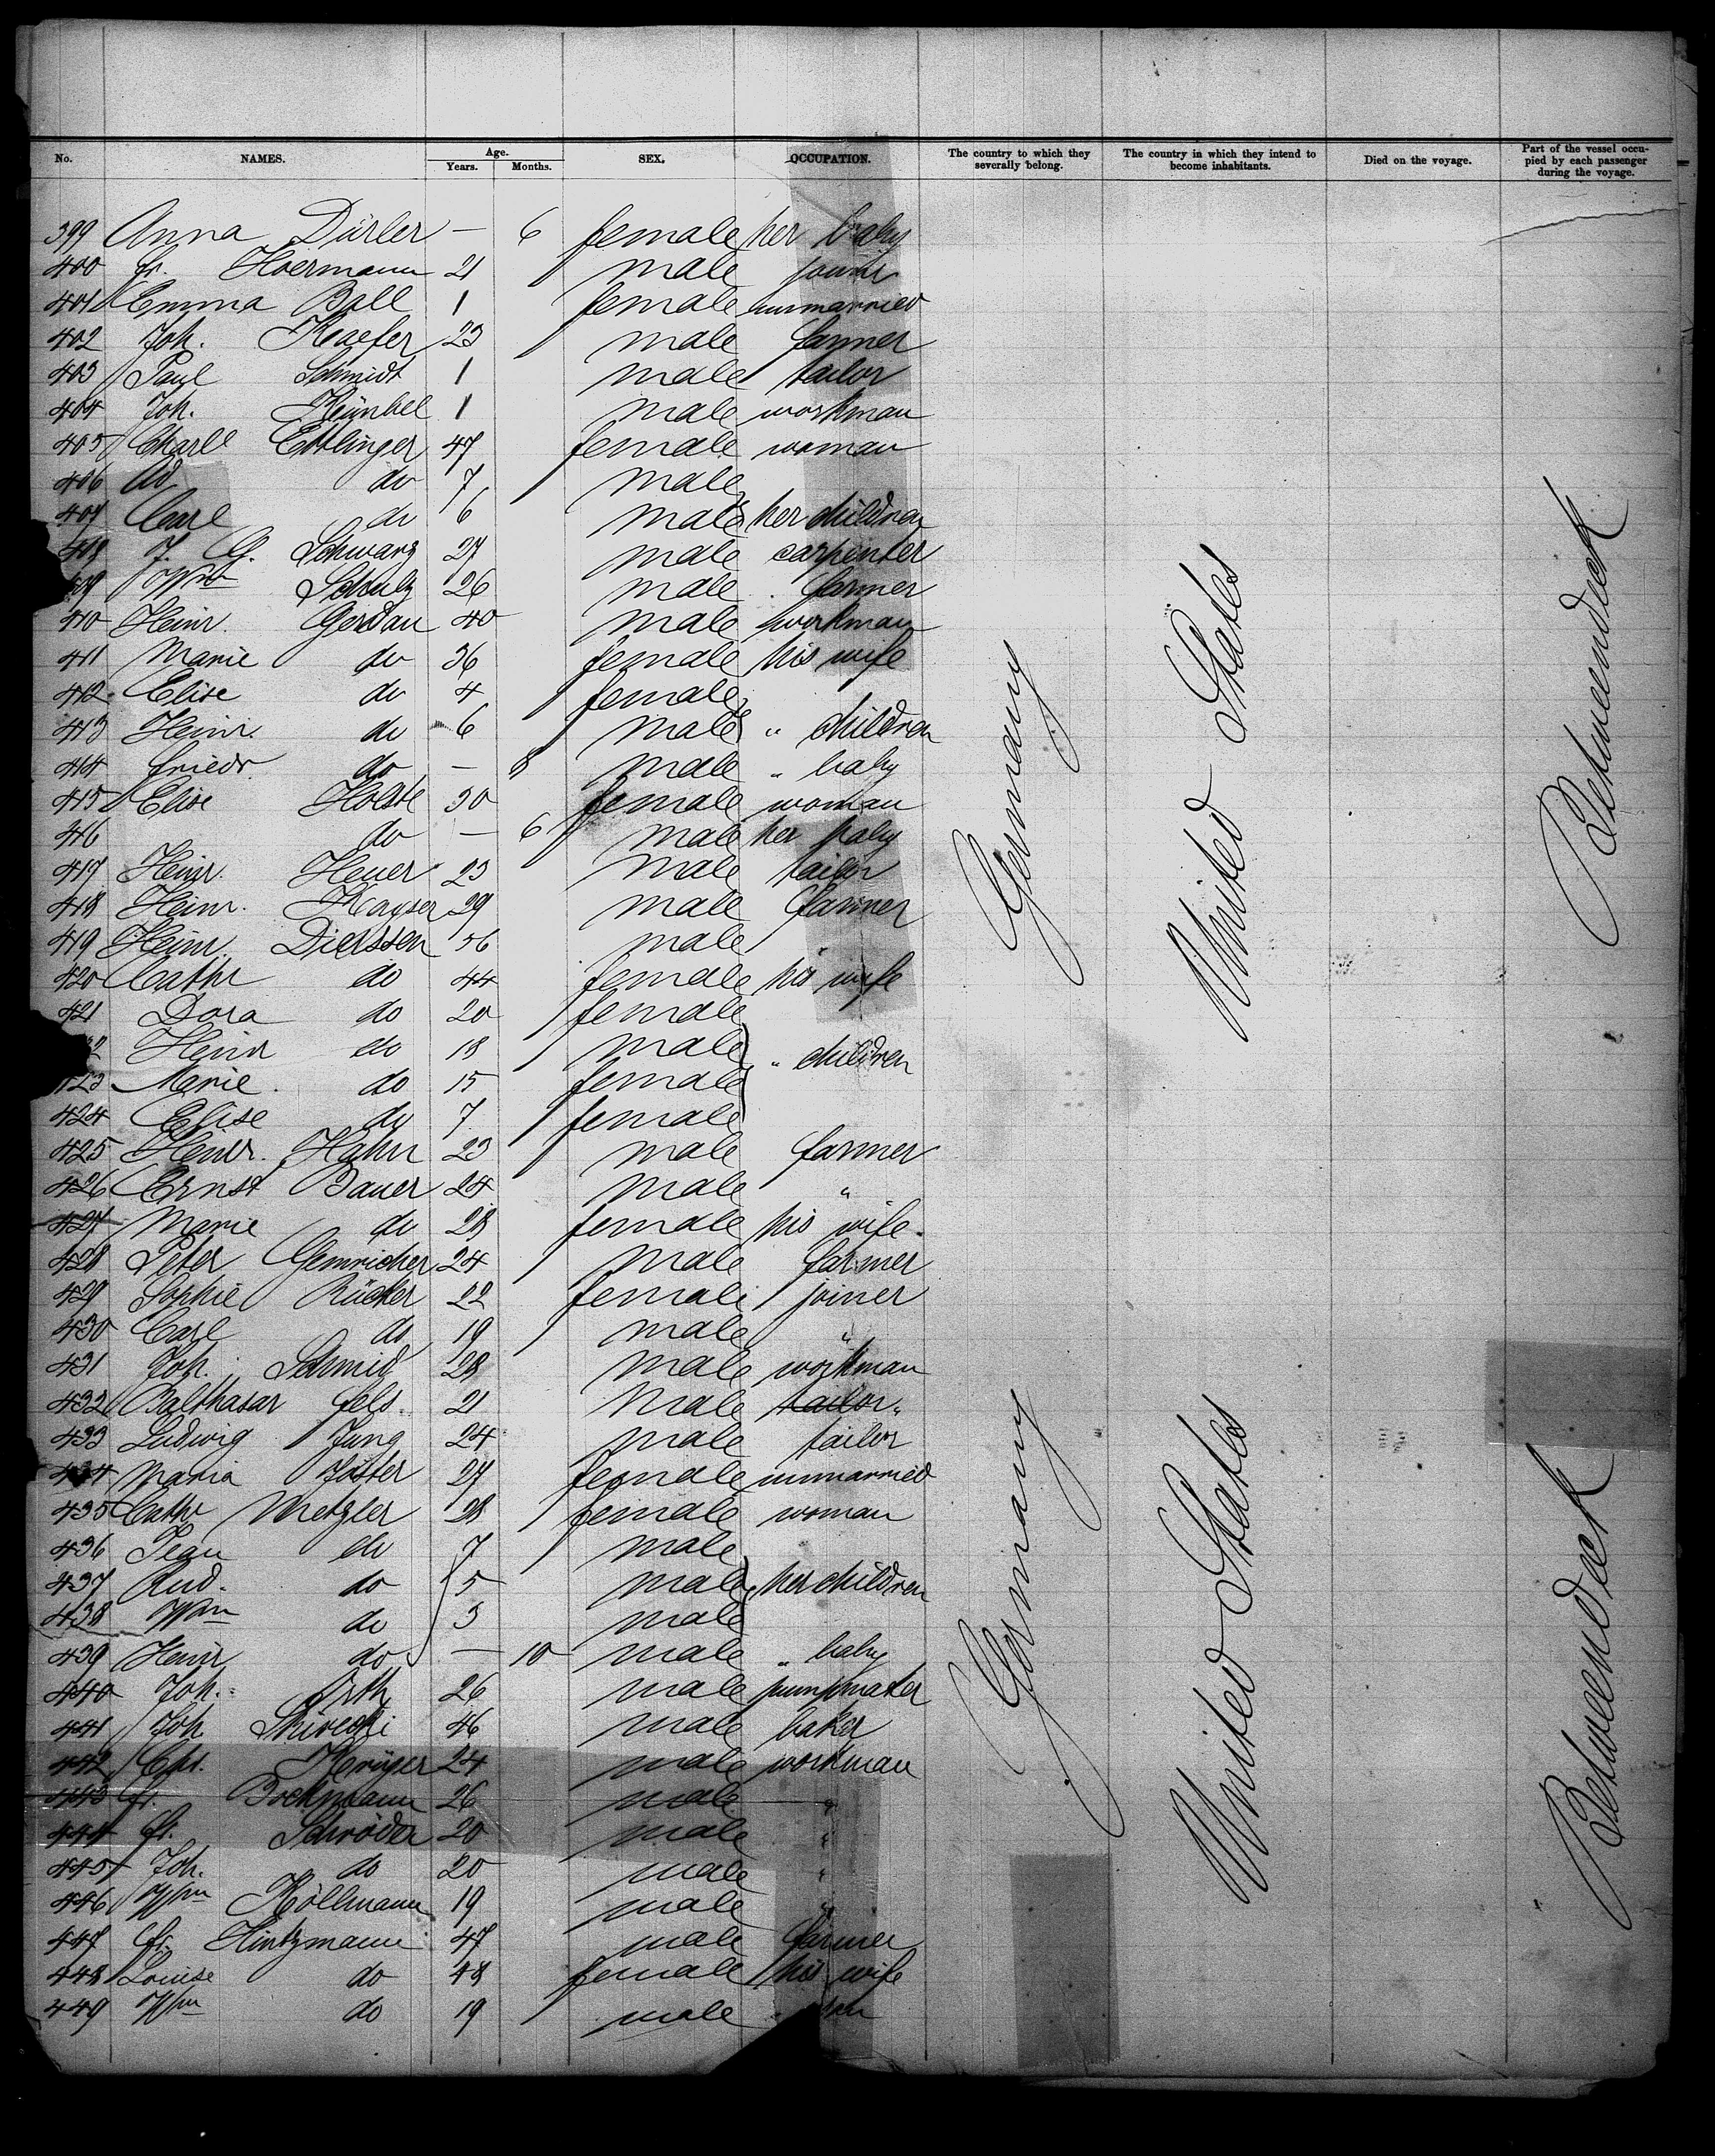 No. NAMES. Age. Years. Months. SEX. OCCUPATION. The country to which they severally belong. The country in which they intend to become inhabitants. Died on the voyage. Part of the vessel occupied by each passenger during the voyage.
399 Anna Dürler — 6 female her baby
400 Fr. Hoermann 21 male joiner
401 Emma Ball 1 female unmarried
402 Joh. Kaefer 23 male farmer
403 Paul Schmidt 1 male tailor
404 Joh. Künbel 1 male workman
405 Charl Ettlinger 47 female woman
406 Ad. do 7 male
407 Carl do 6 male her children
408 J. G. Schwarz 27 male carpenter
409 Wm Schulz 26 male farmer
410 Heinr. Gerdau 40 male workman
411 Marie do 36 female his wife
412 Elise do 4 female
413 Heinr. do 6 male " children
414 Friedr. do — 8 male " baby
415 Elise Holste 30 female woman
416 do — 6 male her baby
417 Heinr. Heuer 23 male tailor
418 Heinr. Kayser 29 male farmer
419 Heinr. Dierssen 56 male "
420 Cathr do 44 female his wife
421 Dora do 20 female
422 Heinr do 18 male " children
423 Marie do 15 female
424 Elise do 7 female
425 Heinr. Hahn 23 male farmer
426 Ernst Bauer 24 male "
427 Marie do 28 female his wife.
428 Peter Gemricher 24 male farmer
429 Sophie Rücker 22 female joiner
430 Carl do 19 male "
431 Joh. Schmid 28 male workman
432 Balthasar Fels 21 male tailor "
433 Ludwig Jung 24 male tailor
434 Maria Joster 27 female unmarried
435 Cathr Metzler 28 female woman
436 Jean do 7 male
437 Rud. do 5 male her children
438 Wm do 3 male
439 Heinr do — 10 male " baby
440 Joh. Orth 26 male pumpmaker
441 Joh 46 male baker
442 Chr. Krüger 24 male workman
443 Fr. Bockmann 26 male "
444 Fr. Schröder 20 male "
445 Joh. do 20 male "
446 Wm Köllmann 19 male "
447 Fr. Hintzmann 47 male farmer
448 Louise do 48 female his wife
449 Wm do 19 male " son
Germany United States Betweendeck
Germany United States Betweendeck